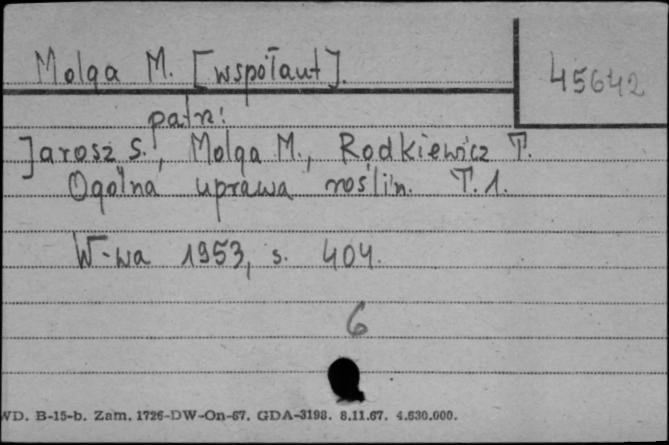 Molga M. [współaut].
45642
patrz:
Jarosz S., Molga M., Rodkiewicz T.
Ogólna uprawa roślin. T. 1.
W-wa 1953, s. 404.
6
WD. B-15-b. Zam. 1726-DW-On-67. GDA-3198. 8.11.67. 4.630.000.